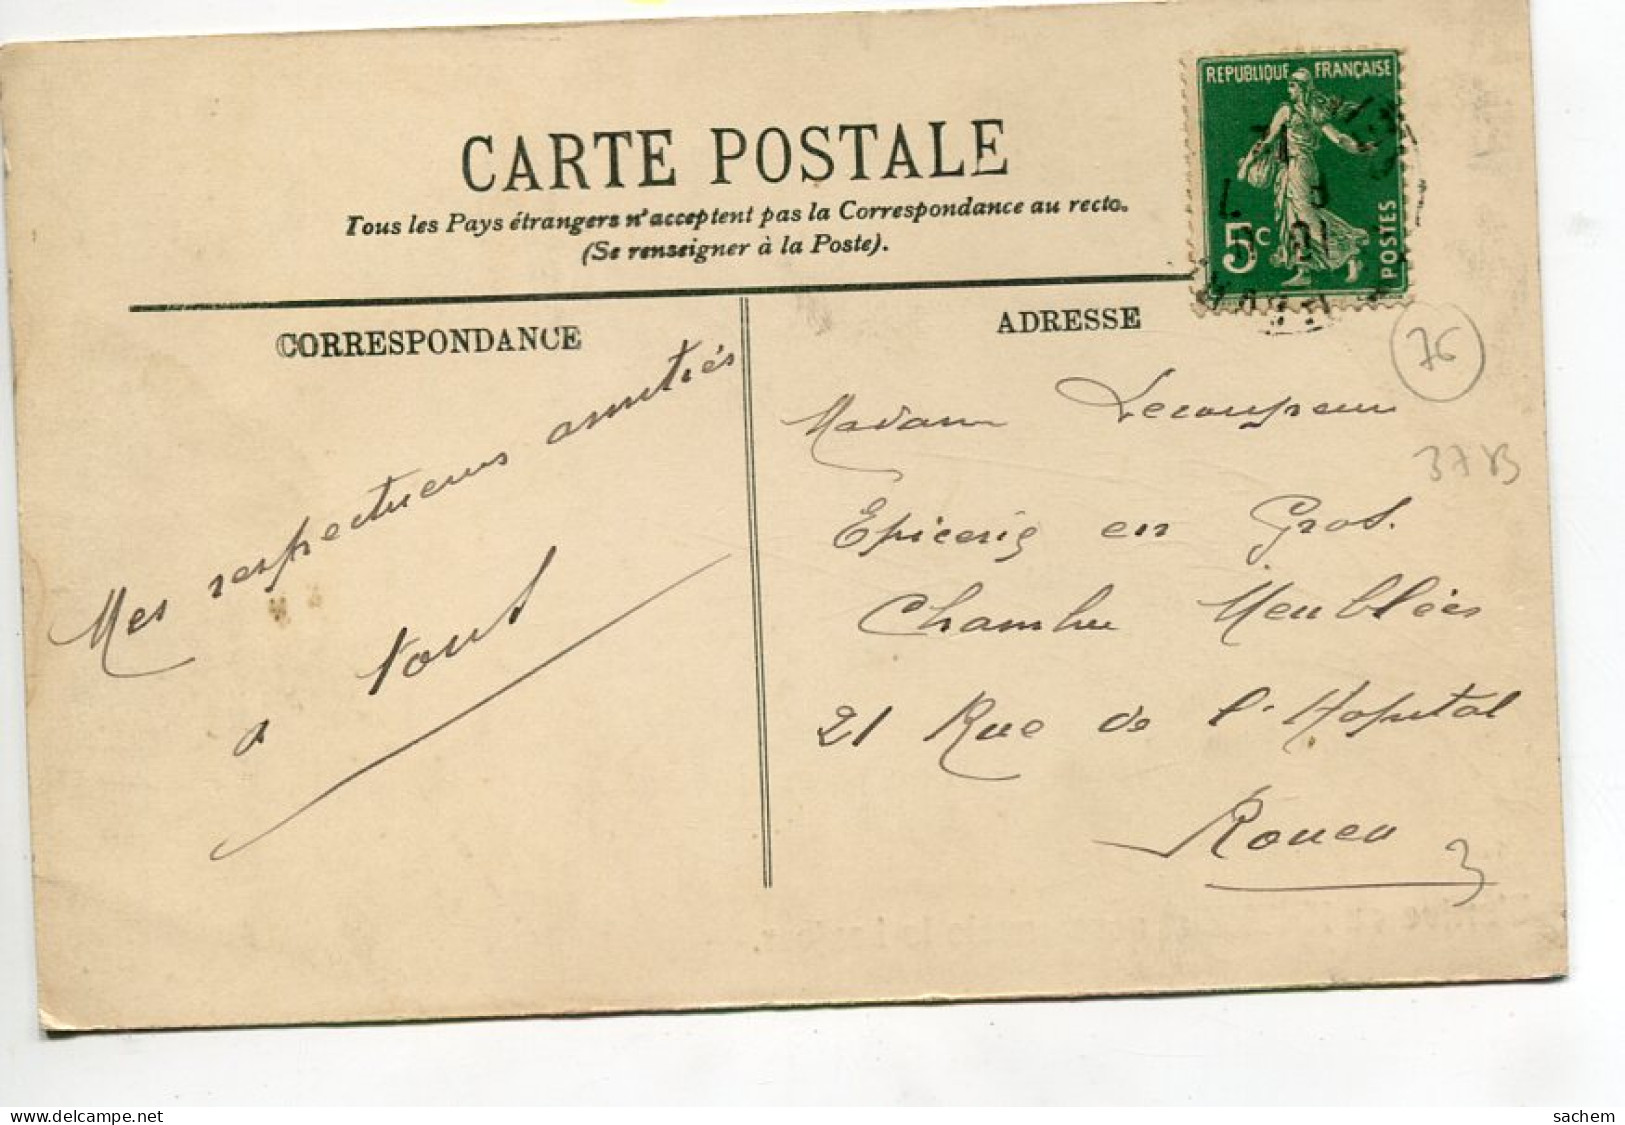 CARTE POSTALE
Tous les Pays étrangers n'acceptent pas la Correspondance au recto.
(Se renseigner à la Poste).
REPUBLIQUE FRANÇAISE
5c
POSTES
CORRESPONDANCE
ADRESSE
76
37
Mes respectueuses amitiés
a tous
Madame Lecouppeur
Epicerie en Gros.
Chambre Meublées
21 Rue de l'Hopital
Rouen
delcampe.net
sachem